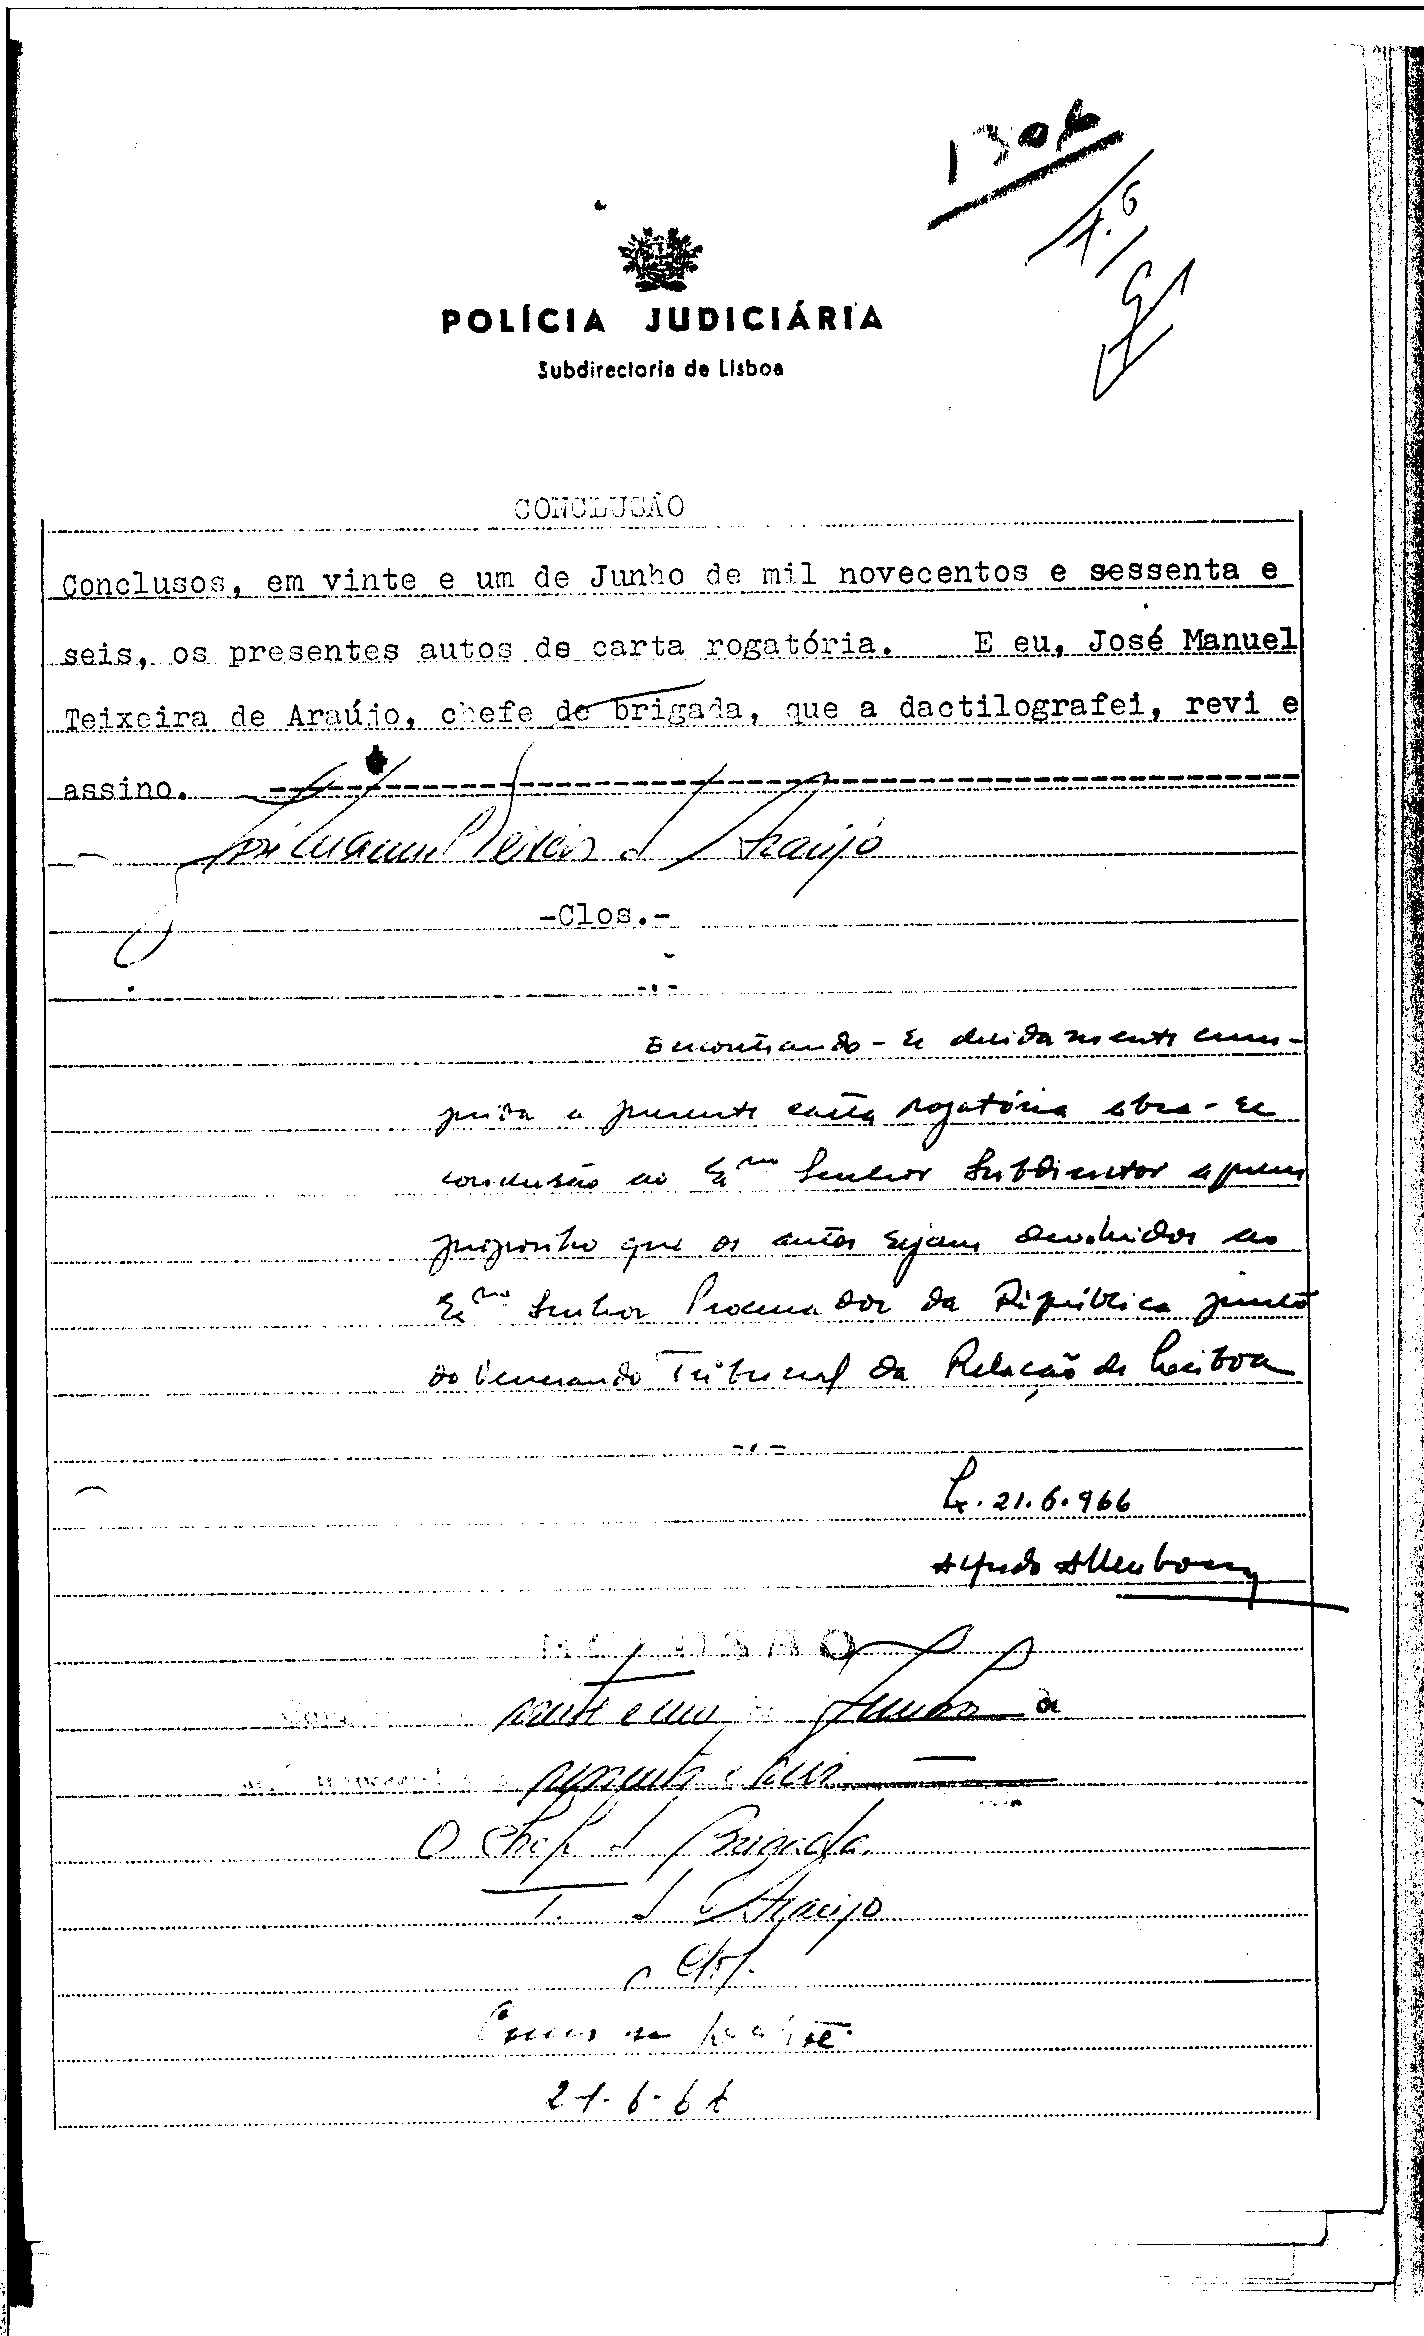 POLÍCIA JUDICIÁRIA
Subdirectoria de Lisboa
CONCLUSÃO
Conclusos, em vinte e um de Junho de mil novecentos e sessenta e
seis, os presentes autos de carta rogatória. E eu, José Manuel
Teixeira de Araújo, chefe de brigada, que a dactilografei, revi e
assino.
José Manuel Teixeira d Araújo
-Clos.-
-.-
Encontrando-se devidamente cum-
prida a presente carta rogatória abra-se
conclusão ao Exmo Senhor Subdirector a quem
proponho que os autos sejam devolvidos ao
Exmo Senhor Procurador da República junto
do Venerando Tribunal da Relação de Lisboa
-.-
Lx. 21.6.966
Alfredo
vinte e um Junho de
sessenta e seis
O Chefe d Brigada
T. d Araújo
21.6.66